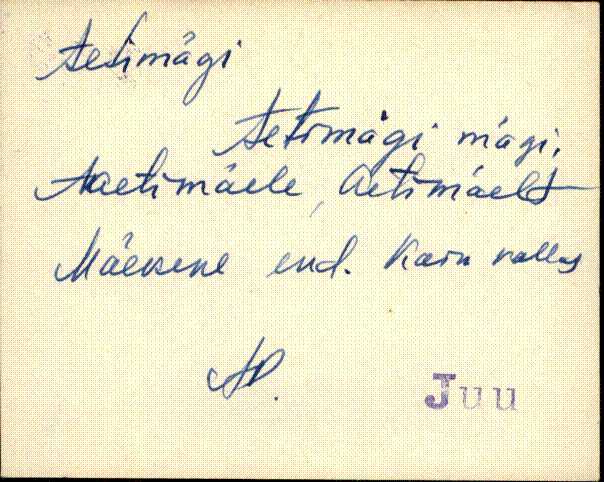 Aetimägi
Aetimägi mägi,
Aaetimäele, Aetimäelt
Mäevene end. Kaiu vallas
AP.
Juu